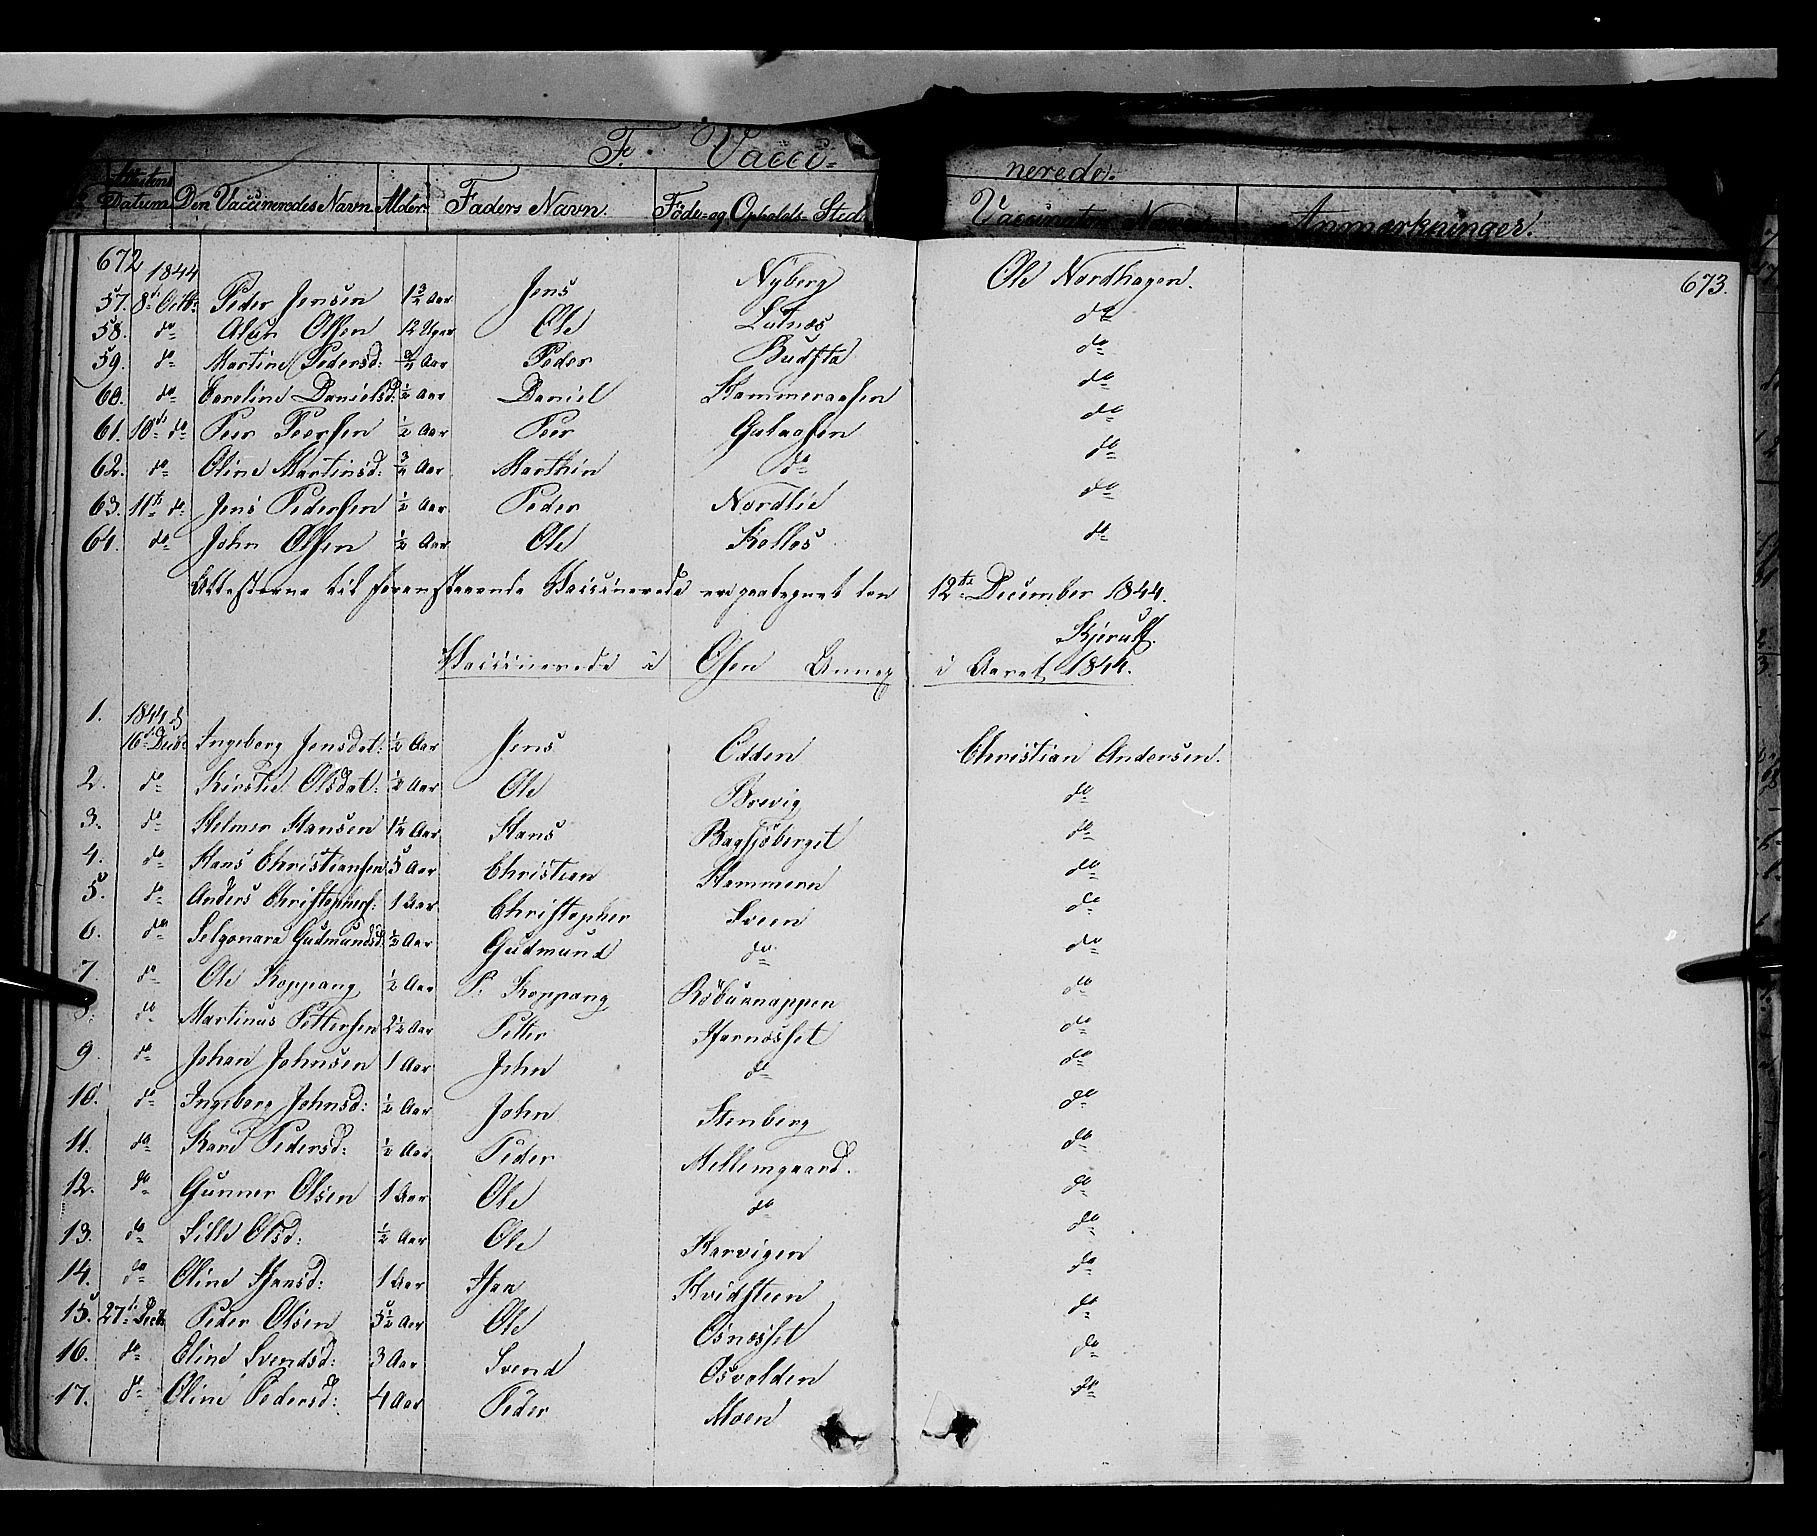 F. Vacci- nerede.
Attestens Datum Den Vaccineredes Navn Alder Faders Navn. Föde- og Opholds Sted Vaccinators Navn Anmærkninger.
672 673.
1844
57. 8de Octb: Peder Jensen 1¾ Aar Jens Nyberg Ole Nordhagen.
58. do Olsen 12 Uger Ole Lutnæs do
59. do Martine Pedersd: ¾ Aar Peder Budsta do
60. do Caroline Danielsd: ½ Aar Daniel Hammeraasen do
61. 10de do Peer Peersen ½ Aar Peer Galaasen do
62. do Oline Martinsd: ¾ Aar Marthin do do
63. 11te do Jens Pedersen ½ Aar Peder Nordlie do
64. do John Olsen ½ Aar Ole Kollos do
Attesterne til foranstaaende Vaccinerede ere paategnet den 12te December 1844.
Kjerulf.
Vaccinerede i Osen Annex i Aaret 1844.
1. 1844 d
16de Decbr Ingeborg Jensdat: ½ Aar Jens Odden Christian Andersen.
2. do Kirstie Olsdat: ½ Aar Ole Brevig do
3. do Helmer Hansen 1½ Aar Hans Bagsjöberget do
4. do Hans Christiansen 5 Aar Christian Hammern do
5. do Anders Christophers: 1 Aar Christopher Sveen do
6. do Gudmundsd: ½ Aar Gudmund do do
7. do Ole Koppang ½ Aar P. Koppang Röbuknappen do
8. do Martinus Pettersen 2½ Aar Petter do
9. do Johan Johnsen 1 Aar John do do
10. do Ingeborg Johnsd: ½ Aar John Stenberg do
11. do Kari Pedersd: ½ Aar Peder Mellemgaard. do
12. do Gunner Olsen 1 Aar Ole do do
13. do Sille Olsd: ½ Aar Ole Harvigen do
14. do Oline 1 Aar Kvidsteen do
15. 27de Decbr Peder Olsen 5½ Aar Ole Osnæsset do
16. do Eline Svendsd: 3 Aar Svend Osvolden do
17. do Oline Pedersd: 4 Aar Peder Moen do